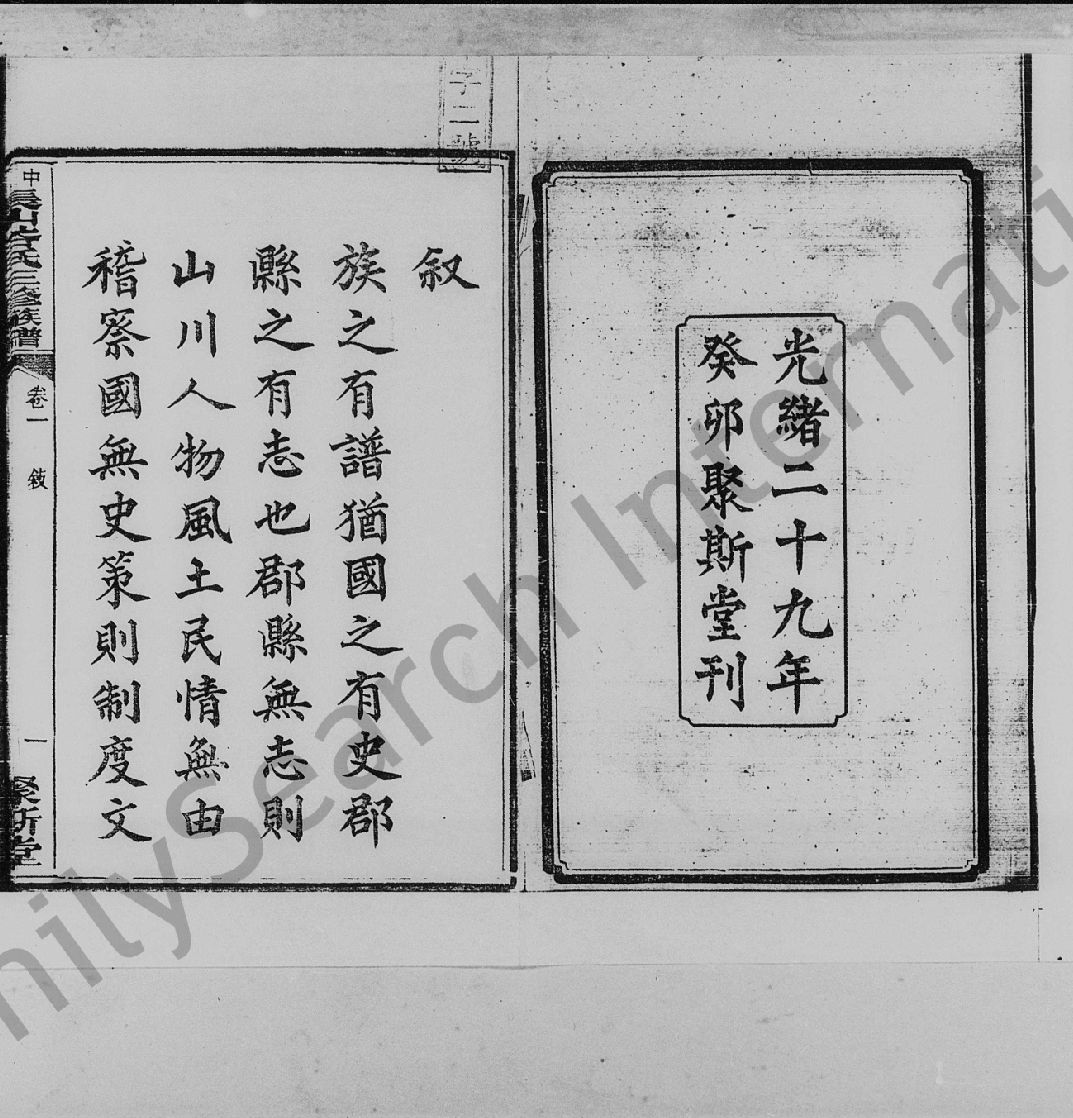 光緒二十九年
癸卯聚斯堂刊
字二號
叙
族之有譜猶國之有史郡
縣之有志也郡縣無志則
山川人物風土民情無由
稽察國無史策則制度文
中
氏三修族譜
卷一
敘
一
聚斯堂
FamilySearch International